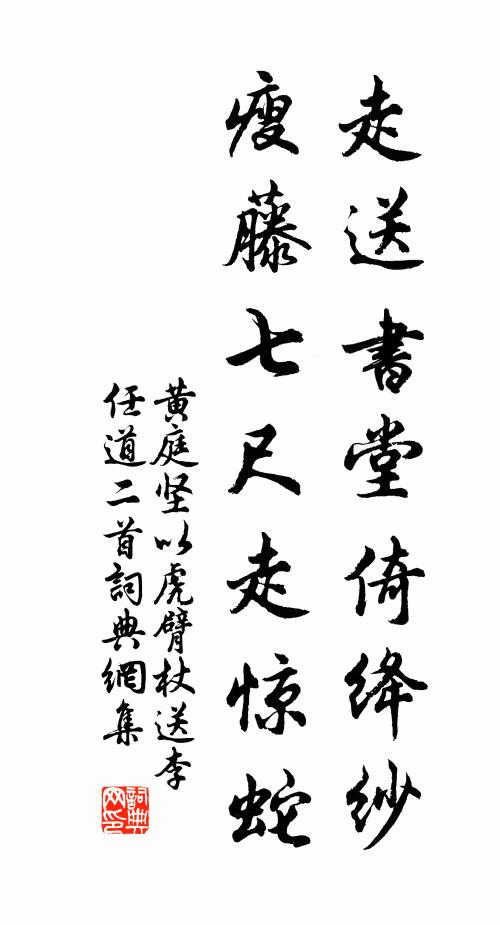 走送書堂倚絳紗
瘦藤七尺走惊蛇
黄庭坚以虎臂杖送李
任道二首詞典網集
詞典
网印